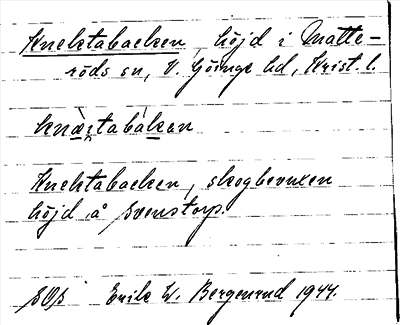 Knektabacken, höjd i Matte-
röds sn, V. Göinge hd, Krist. l.
Knektabacken, skogbevuxen
höjd å Svenstorp.
SOS Erik W. Bergenrud 1944.